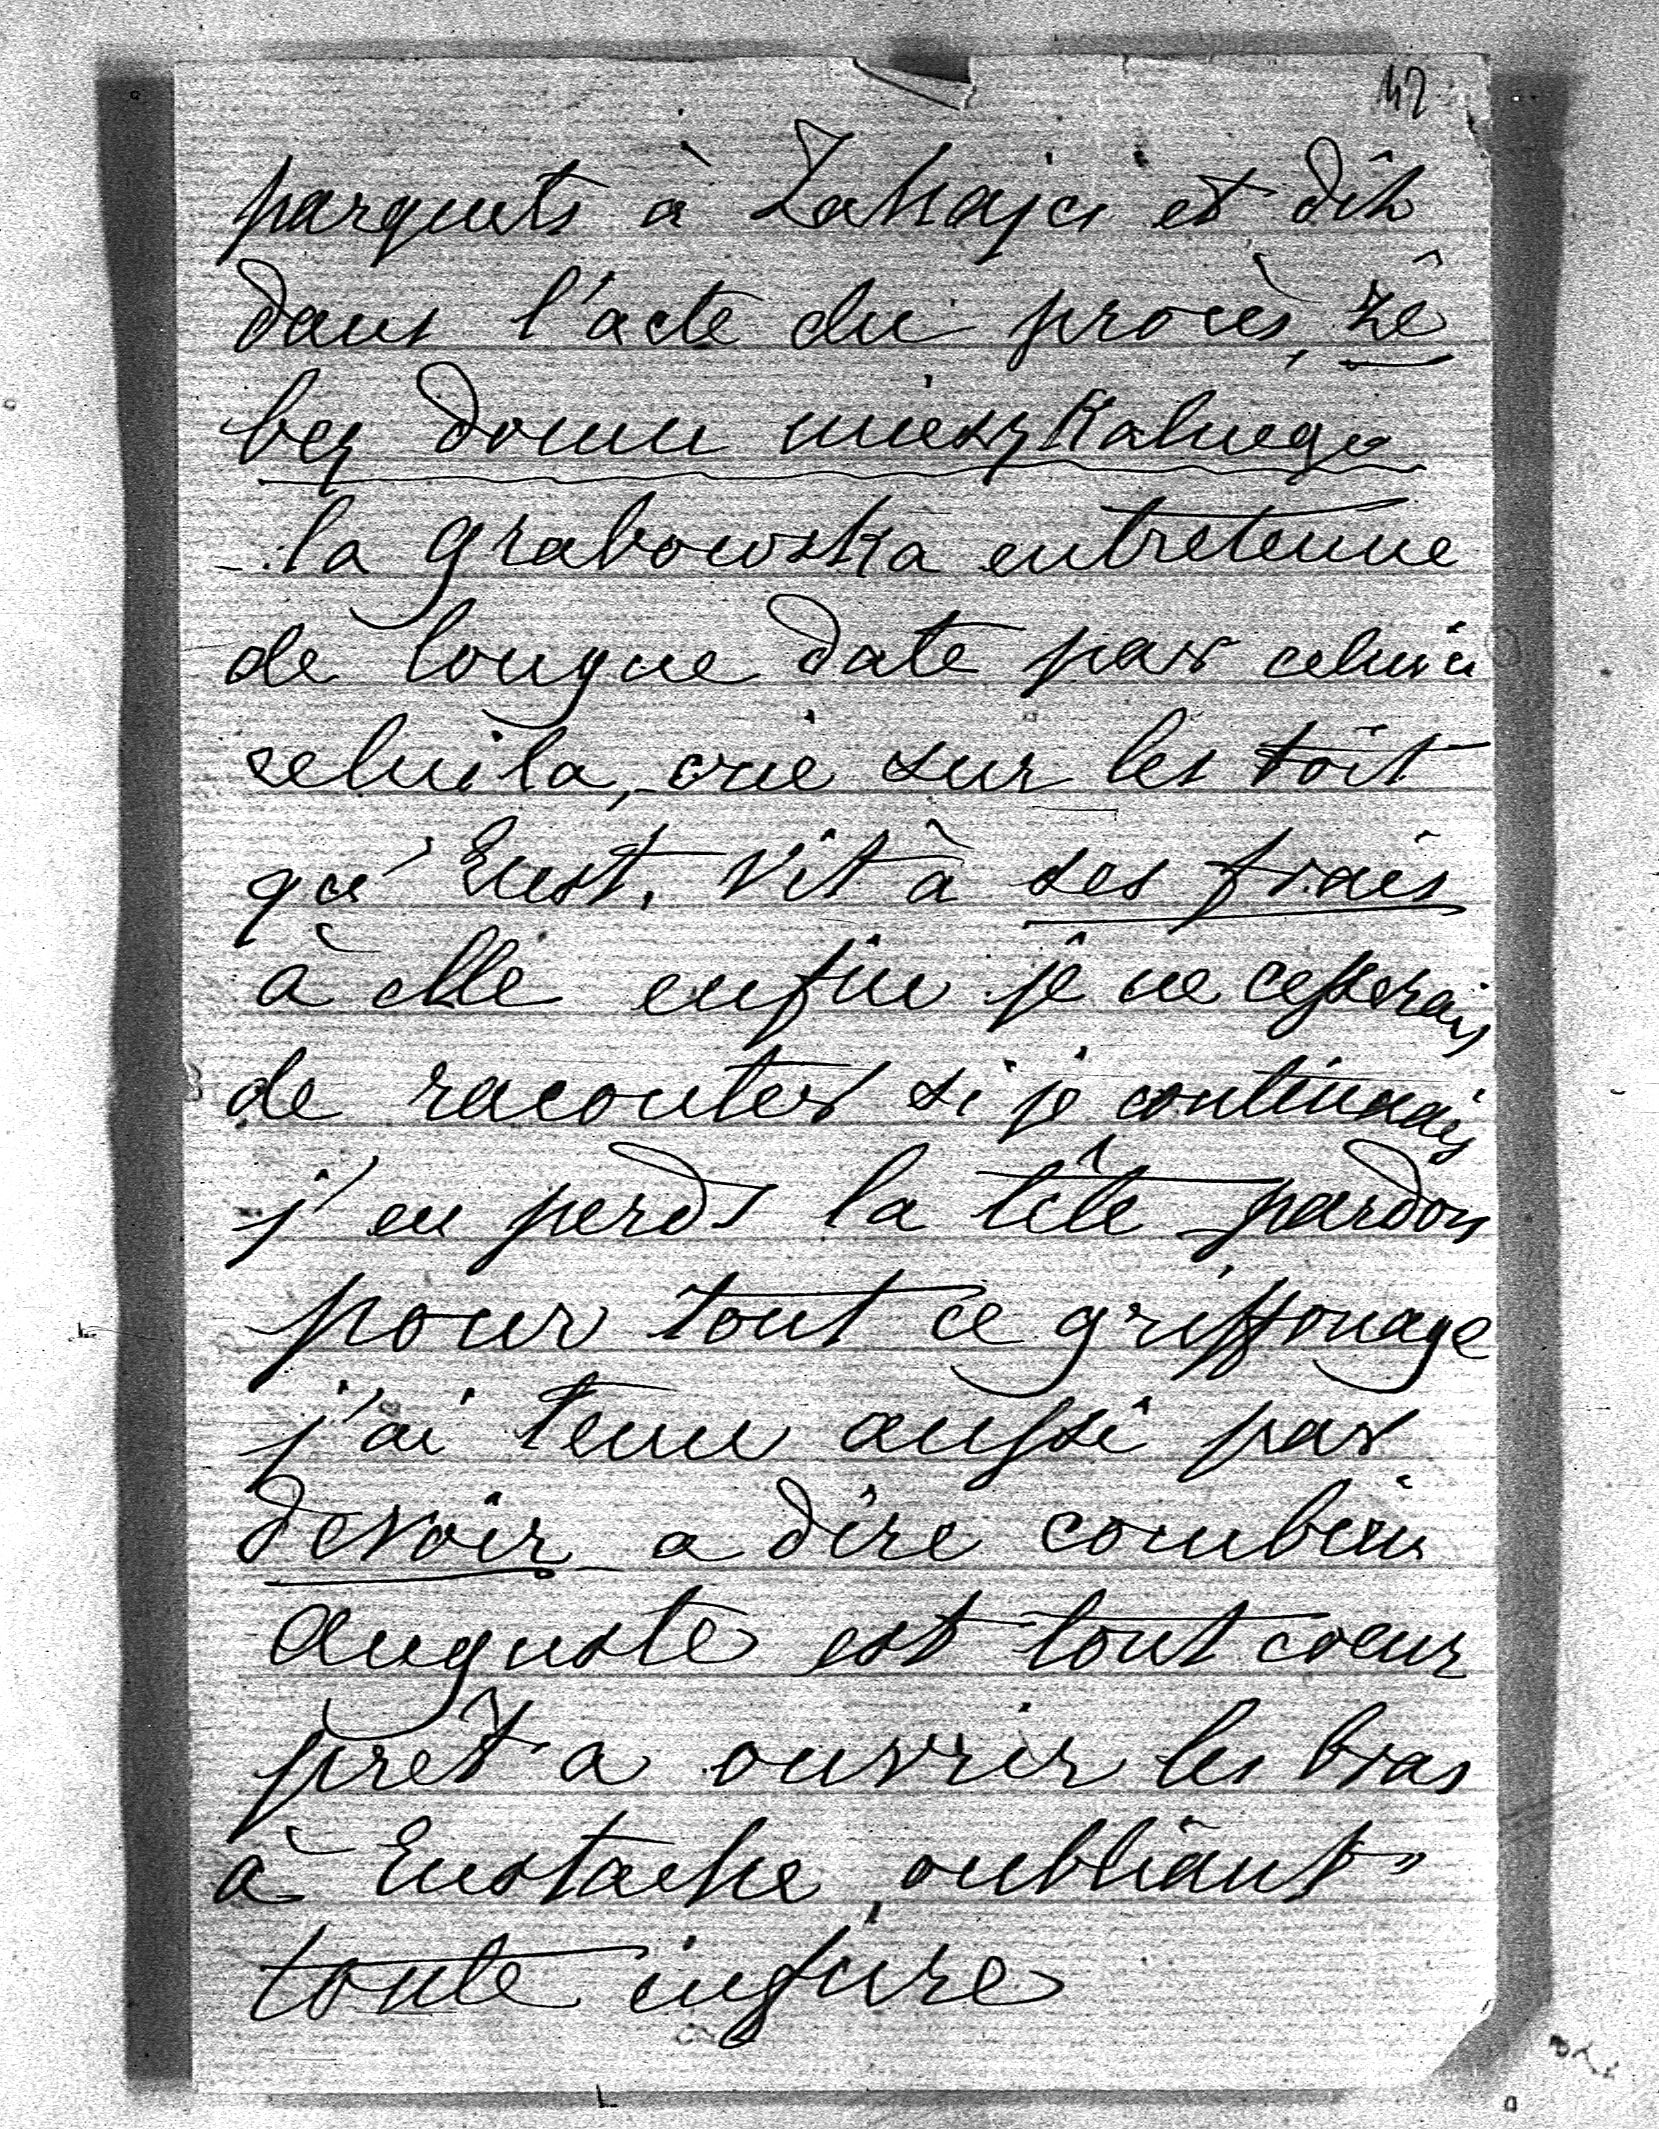 42
parquets à Zahajci et dit
dans l'acte du procès, że
bez domu mieszkalnego
la Grabowska entretenue
de longue date par celui ci
celui la, crie sur les toit
qu' Eust. vit à ses frais
à elle enfin je ne cesserais
de raconter si je continuais
j'en perds la tête pardon
pour tout ce griffonage
j'ai tenu aussi par
devoir a dire combien
Auguste est tout coeur
prêt a ouvrir les bras
à Eustache, oubliant
toute injure